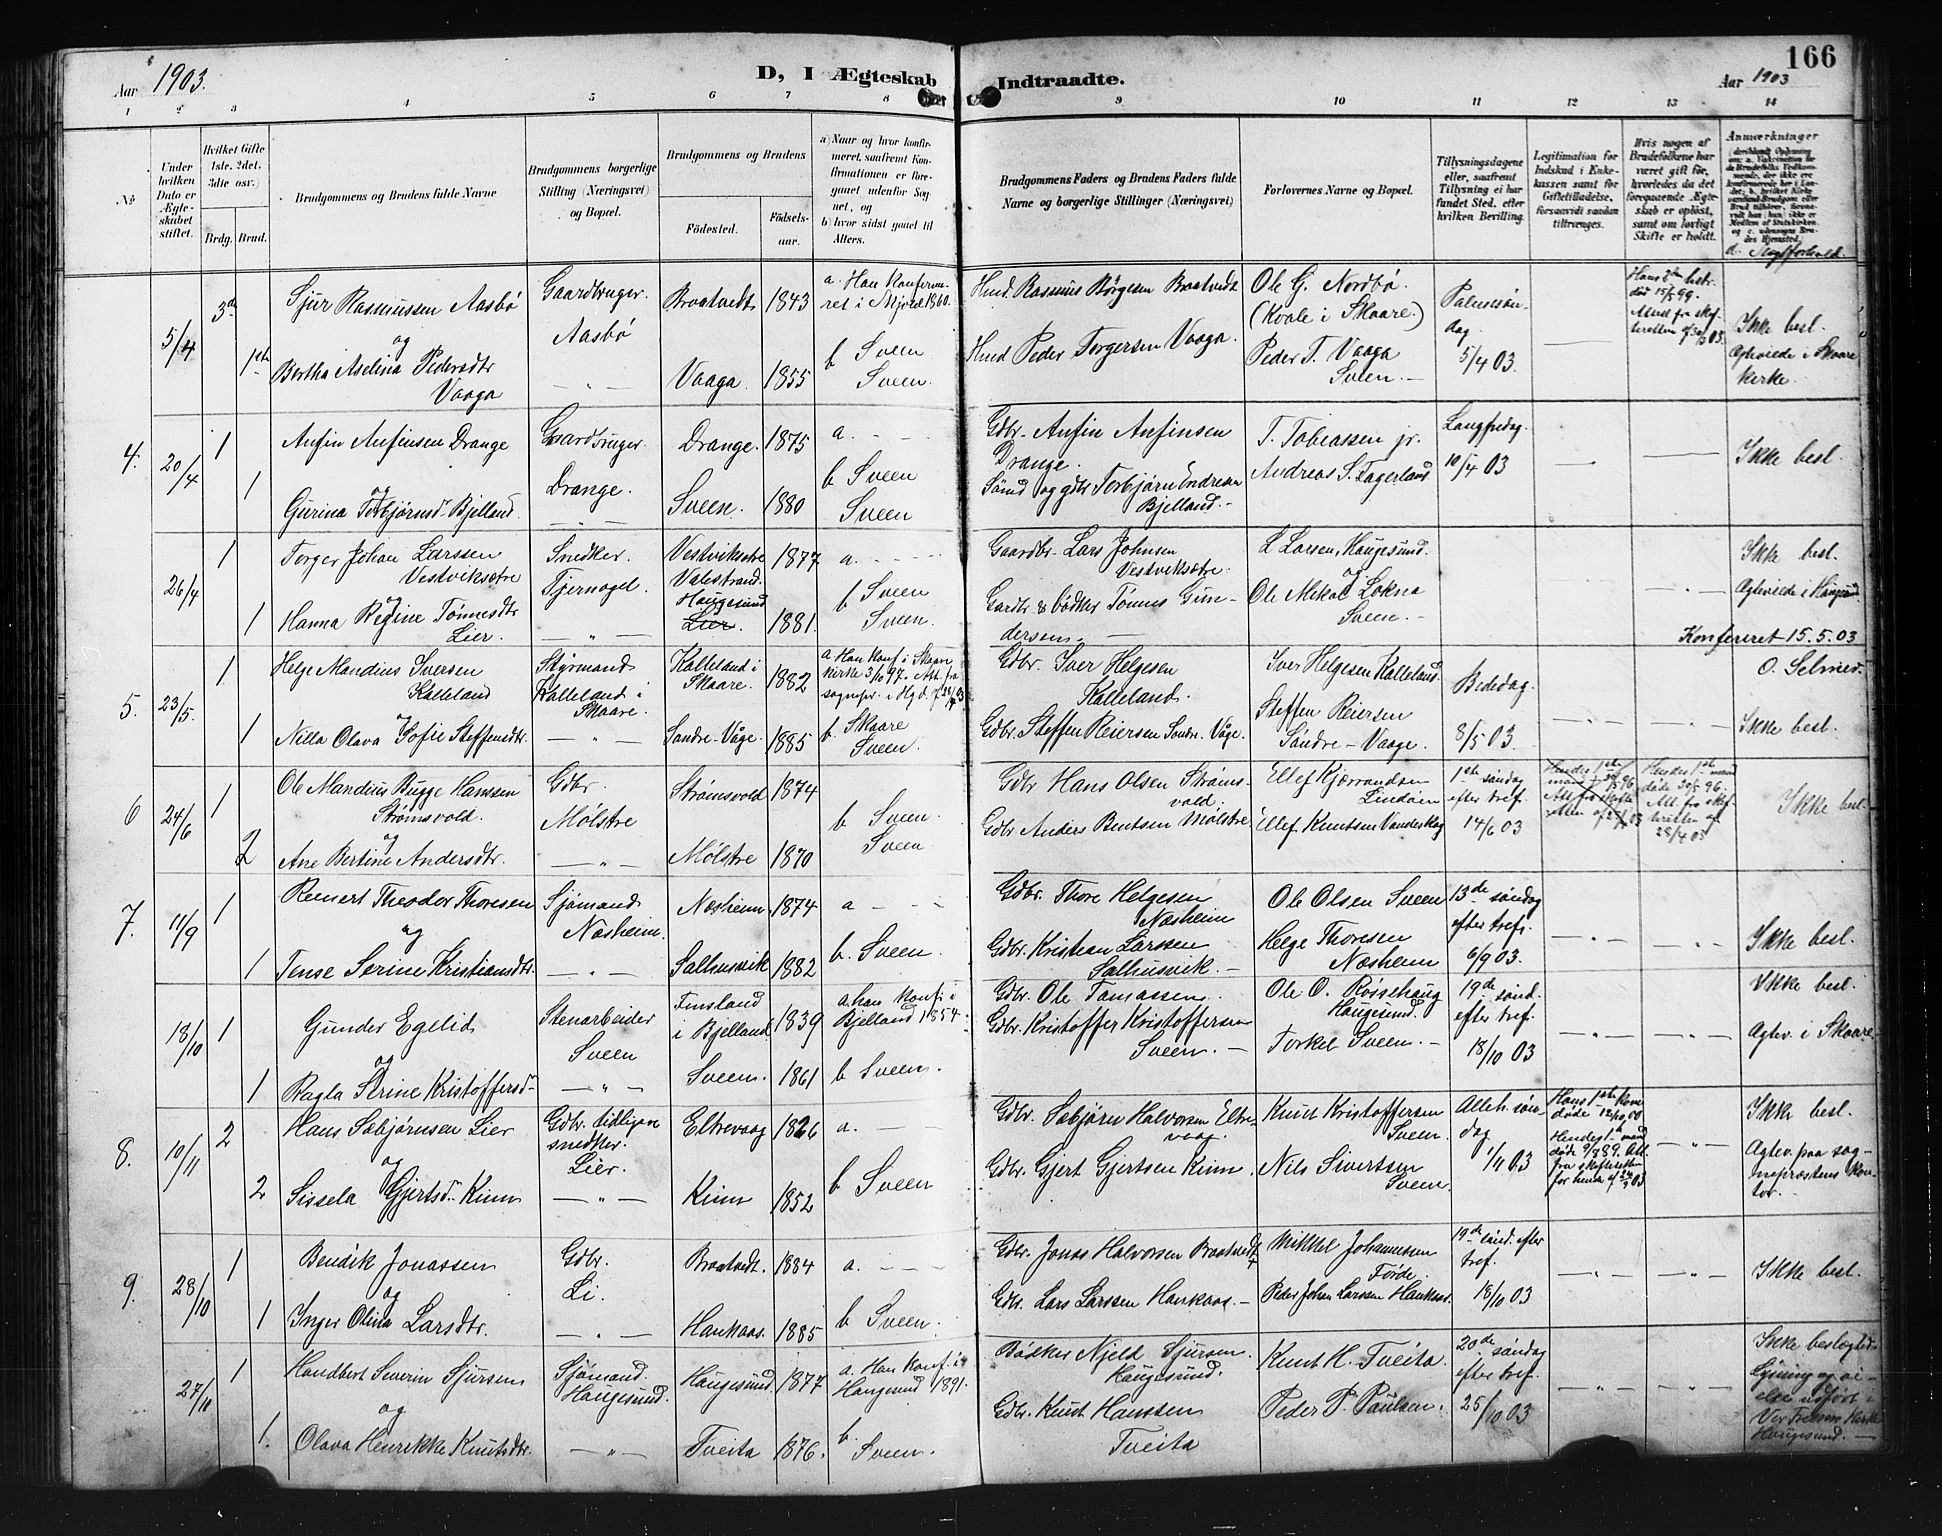 Aar 1903.
D, I Ægteskab Indtraadte.
Aar 1903
166
1 2 3 4 5 6 7 8 9 10 11 12 13 14
No
Under hvilken Dato er Ægteskabet stiftet.
Hvilket Gifte 1ste. 2det. 3die osv.
Brdg. Brud.
Brudgommens og Brudens fulde Navne
Brudgommens borgerlige Stilling (Næringsvei) og Bopæl.
Brudgommens og Brudens
Fødested.
Fødselsaar.
a) Naar og hvor konfirmeret, saafremt Konfirmationen er foregaaet udenfor Sognet, og
b) hvor sidst gaaet til Alters.
Brudgommens Faders og Brudens Faders fulde Navne og borgerlige Stillinger (Næringsvei)
Forlovernes Navne og Bopæl.
Tillysningsdagene eller, saafremt Tillysning ei har fundet Sted, efter hvilken Bevilling.
Legitimation for Indskud i Enkekassen samt for Giftetilladelse, forsaavidt saadan tiltrænges.
Hvis nogen af Brudefolkene har været gift før, hvorledes da det foregaaende Ægteskab er opløst, samt om lovligt Skifte er holdt.
Anmærkninger
5/4
3de
Sjur Rasmussen Aasbø
og
1ste
Bertha Aselina Pedersdtr
Vaaga
Gaardbruger.
Aasbø
— " —
Braatvedt 1843
Vaaga. 1855
a. Han konfirmeret i Skjold 1860.
b Sveen
Sveen.
Hmd. Rasmus Børgesen Braatvedt
Hmd Peder Torgersen Vaaga.
Ole G. Nordbø
(Kvale i Skaare.)
Peder T. Vaaga
Sveen. —
Palmesøndag
5/4 03.
Hans 2den hustr. død 15/5 99.
Attest fra skifteretten
Ikke besl.
Agtviede i Skaare Kirke.
4.
20/4
1
Anfin Anfinsen Drange
og
1
Gurina Torbjørnsd. Bjelland.
Gaardbruger.
Drange.
— " —
Drange. 1875
Sveen. 1880
a. - - -
b Sveen
Sveen
Gdbr. Anfin Anfinsen
Drange.
Smed og gdbr Torbjørn Endresen
Bjelland. —
T. Tobiassen jr.
Andreas S. Fagerland
Langfredag.
10/4 03
Ikke besl.
26/4
1
Torger Johan Larssen
Vestviksætre
og
1
Hanna Regine Tønnesdtr
Lier.
Snedker.
Tjernagel.
— " —
Vestviksætre
Valestrand. 1877
Haugesund
Lier. 1881.
a. - - -
b Sveen
Sveen.
Gaardbr. Lars Johnsen
Vestviksætre.
Gardbr & bødker Tønnes Gundersen. —
L Larsen, Haugesund.
og
Ole Mekal Lokna
Sveen. —
Ikke besl.
Agtviede i Haugesund
Konfereret 15.5.03
O. Selmer.
5.
23/5.
1
Helge Mandius Iversen
Kalleland
og
1
Nilla Olava Sofie Steffensdtr.
Styrmand
Kalleland i
Skaare.
— " —
Kalleland i
Skaare. 1882
Søndre-Våge. 1885
a. Han konf. i Skaare
kirke 3/10 97.
b. Skaare
Sveen.
Gdbr. Iver Helgesen
Kalleland.
Gdbr. Steffen Reiersen Søndre-Våge.
Iver Helgesen Kalleland
Steffen Reiersen
Søndre-Vaage.
Bededag.
8/5 03.
Ikke besl.
6
24/6
1
Ole Mandius Bugge Hanssen
Strømsvold.
og
2
Ane Bertine Andersdtr.
Gdbr.
Mølstre
— " —
Strømsvold 1874
Mølstre 1870
b Sveen.
Sveen.
Gdbr Hans Olsen Strømsvold.
Gdbr Anders Bentsen Mølstre
Ellef Kjærrandsen
Lindøen
Ellef Knutsen Vandeskog
1ste søndag
efter tref.
14/6 03
Hendes 1ste mand
døde 30/5 96.
Att. fra skifteretten af
28/4 03
Ikke besl.
7.
11/9
1
Reinert Theodor Thoresen
og
1
Tense Serine Kristiansdtr.
Sjømand
Næsheim.
— " —
Næsheim 1874
Salhusvik 1882
a - - -
b. Sveen.
Gdbr. Thore Helgesen
Næsheim
Gdbr. Kristian Larssen
Salhusvik. —
Ole Olsen Sveen
Helge Thoresen
Næsheim
13de søndag
efter tref.
6/9 03.
Ikke besl.
18/10
1
Gunder Egelid
og
1
Ragla Serine Kristoffersd.
Stenarbeider
Sveen
— " —
Finsland
i Bjelland 1839
Sveen. 1861
a. han konf. i
Bjelland 1854.
b Sveen.
Gdbr. Ole Tamassen.
Gdbr. Kristoffer Kristoffersen
Sveen. —
Ole O. Røssehaug
Haugesund.
Torkel Sveen. —
19de sønd.
efter tref.
18/10 03
Ikke besl.
Agtev. i Skaare
8.
10/11
2
Hans Sæbjørnsen Lier
og
2
Sissela Gjertsd. Kinn
Gdbr. tidligere
snedker.
Lier.
— " —
Eltrevaag 1826
Kinn 1852
a. - —
b Sveen
Gdbr. Sæbjørn Halvorsen Eltrevaag.
Gdbr. Gjert Gjertsen Kinn.
Knut Kristoffersen
Sveen.
Nils Sivertsen
Sveen.
Alleh. søndag
1/11 03
Hans 1ste kone
døde 12/10 00
Hendes 1ste mand
døde 9/8 89. Att.
fra skifteretten
Ikke besl.
Agtev. paa sognepræstens kontor.
9.
28/10
1
Bendik Jonassen
og
1
Inger Olina Larsdtr.
Gdbr.
Li.
— " —
Braatvedt. 1884
Haukaas. 1885
a. - - -
b Sveen.
Gdbr. Jonas Halvorsen Braatvedt
Gdbr. Lars Larssen Haukaas. —
Mikkel Johannesen
Førde
Peder Johan Larssen Haukaas.
19de sønd. efter
tref.
18/10 03
Ikke besl.
27/10
1
Handbert Severin Sjursen
og
1.
Olava Henrikke Knutsdtr.
Sjømand.
Haugesund.
— " —
Haugesund. 1877
Tveita 1876.
a. Han konf. i
Haugesund 1891.
b.
Sveen.
Bødker Njeld Sjursen.
Haugesund.
Gdbr. Knut Hanssen
Tveita
Knut H. Tveita.
Peder P. Paulsen.
20de søndag
efter tref.
25/10 03
Ikke beslægted.
Lysning og vielse udført i
Vor Frelsers Kirke
Haugesund. —